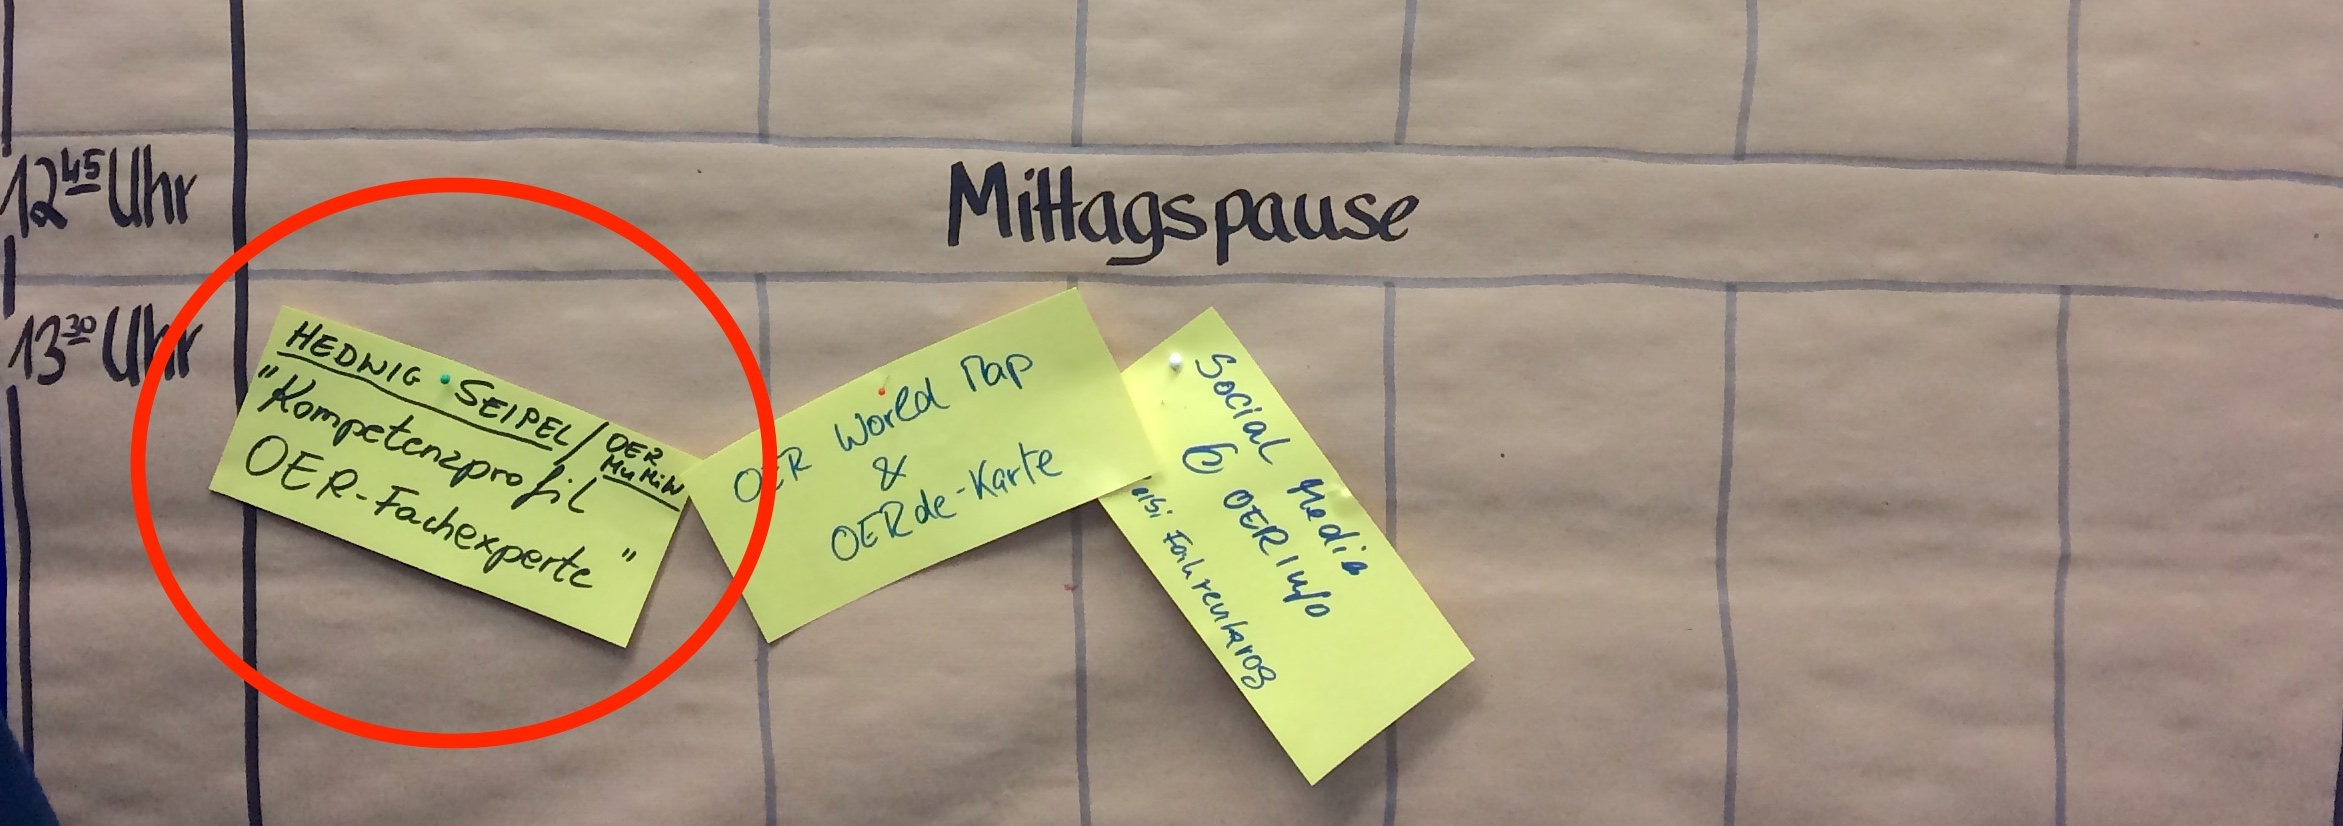 12 45 Uhr
Mittagspause
13 30 Uhr
HEDWIG SEIPEL / OER
MuMiW
"Kompetenzprofil
OER-Fachexperte"
OER World Map
&
OERde-Karte
Social Media
OERinfo